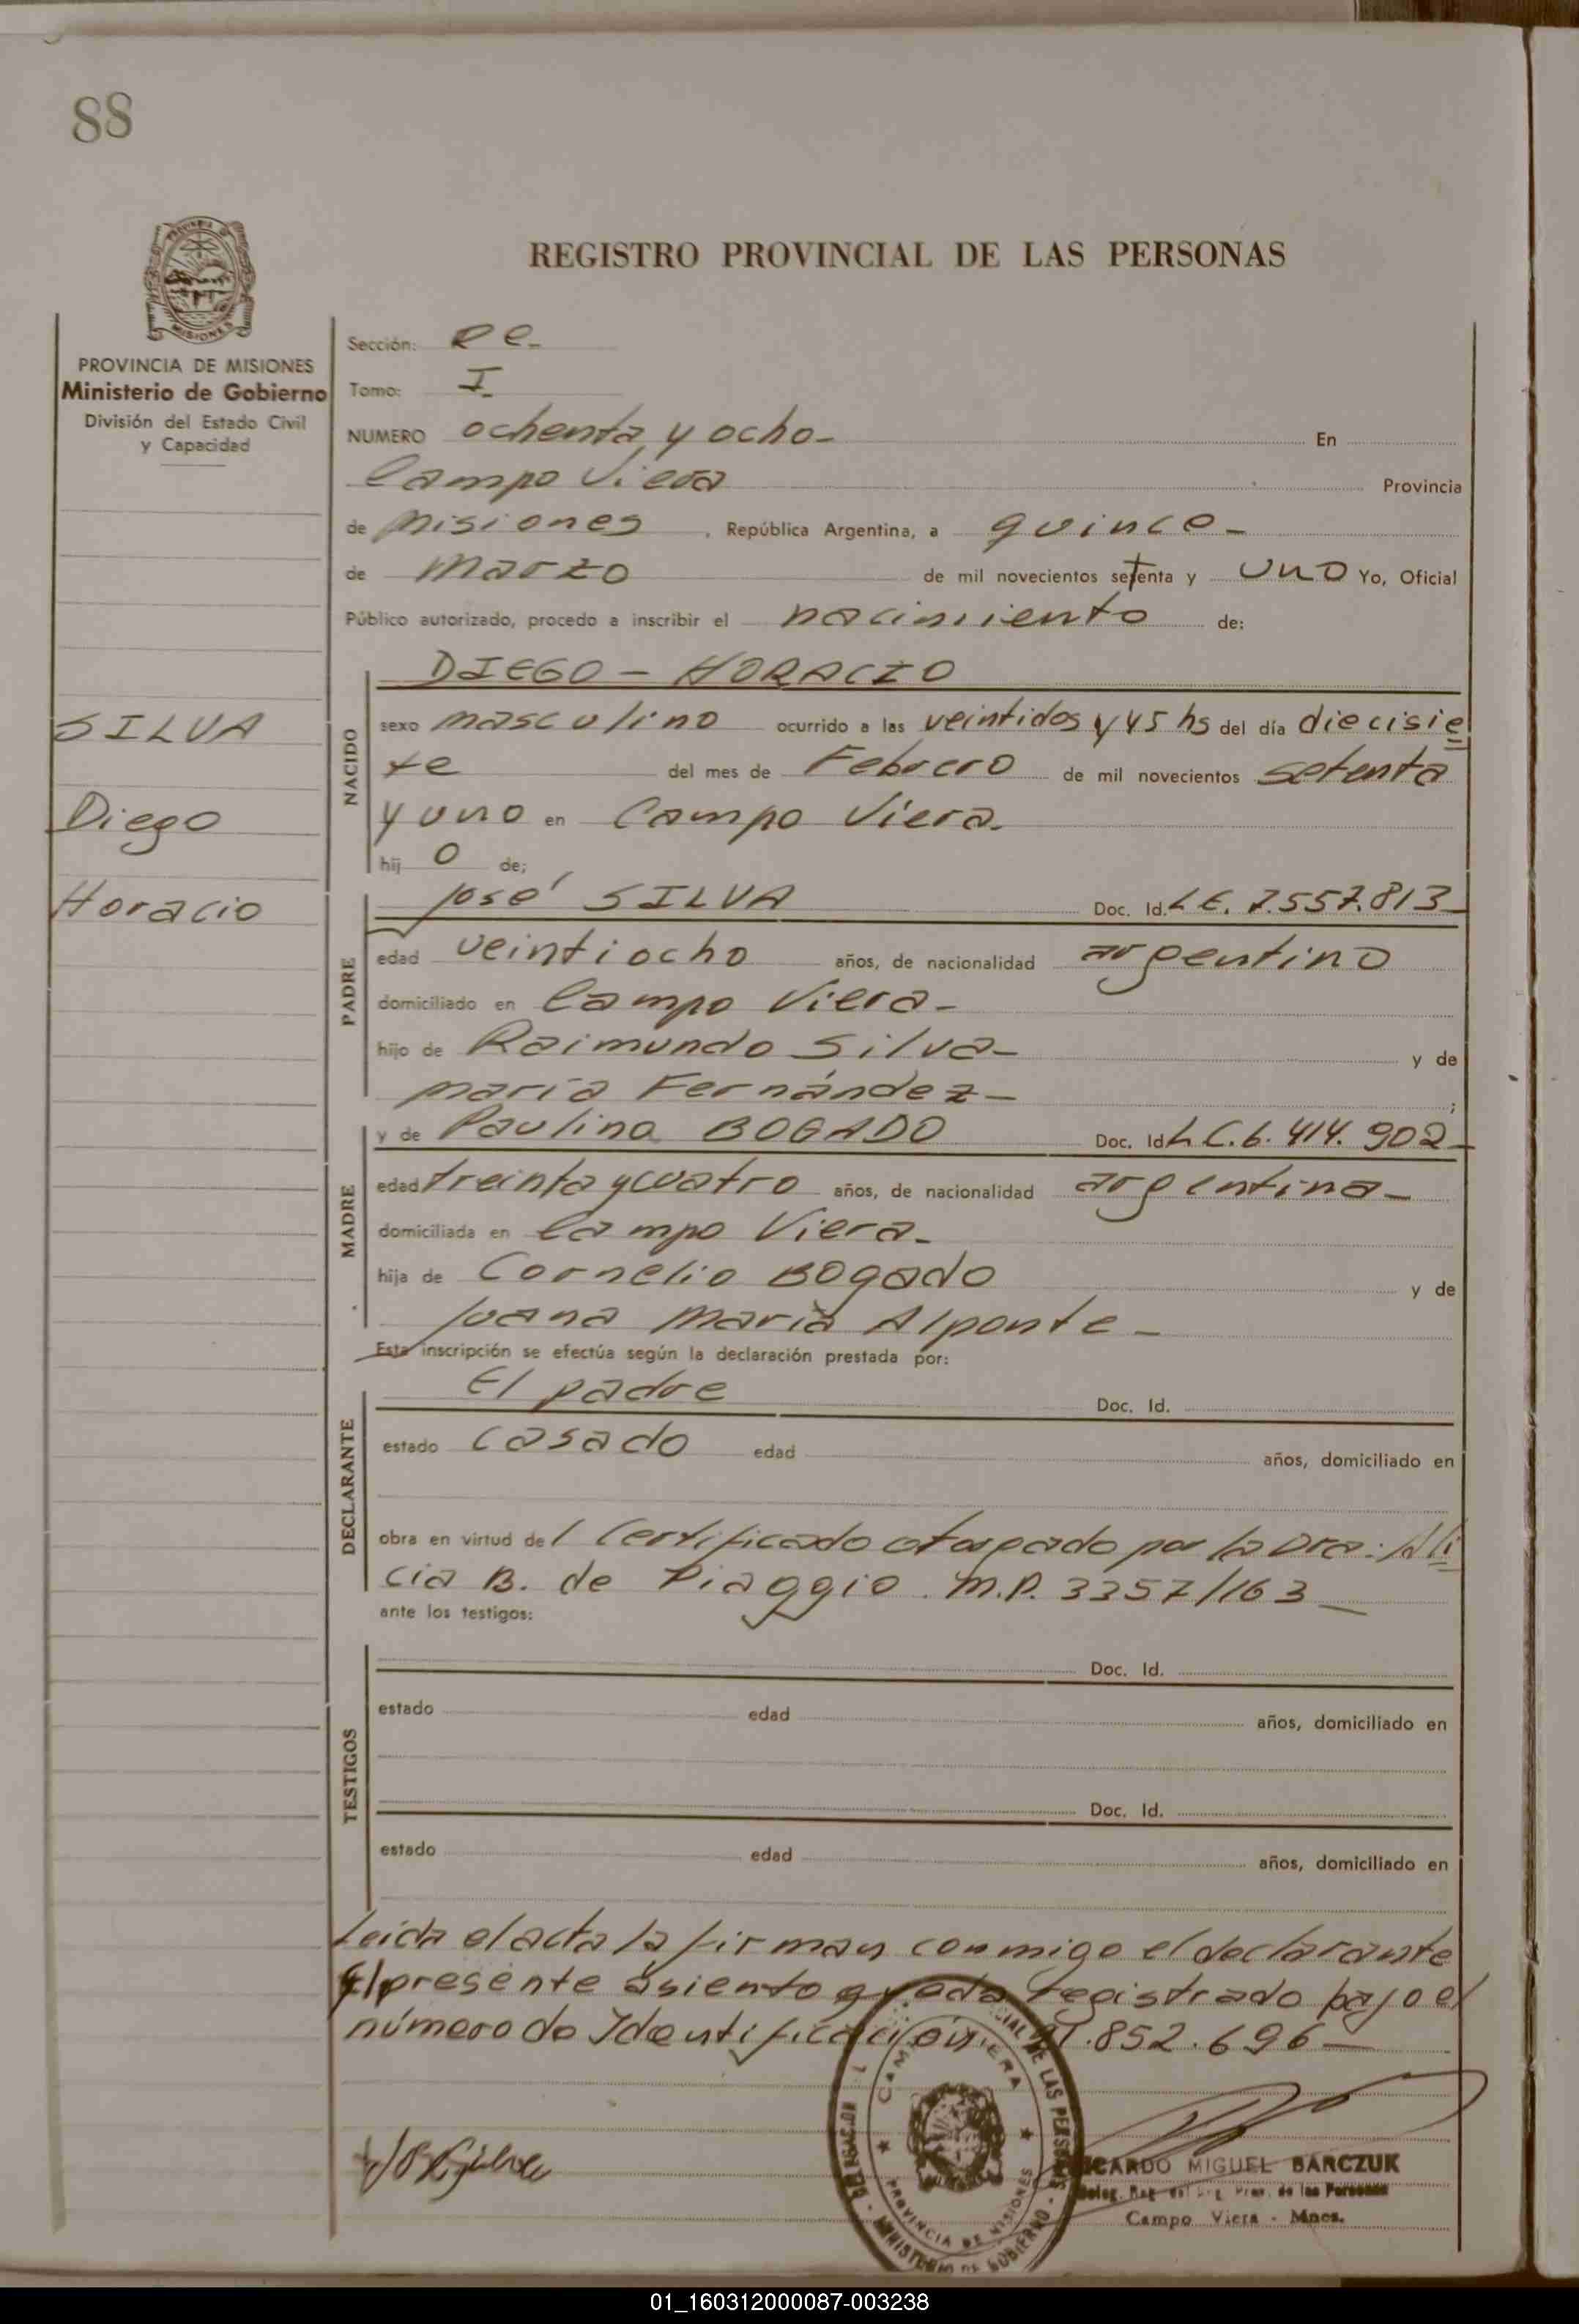 88
REGISTRO PROVINCIAL DE LAS PERSONAS
PROVINCIA DE MISIONES
Ministerio de Gobierno
División del Estado Civil
y Capacidad
SILVA
Diego
Horacio
Sección:
Tomo: I
NUMERO ochenta y ocho - En
Campo Viera Provincia
de Misiones, República Argentina, a quince -
de Marzo de mil novecientos setenta y uno Yo, Oficial
Público autorizado, procedo a inscribir el nacimiento de:
DIEGO - HORACIO
NACIDO
sexo masculino ocurrido a las veintidos y 45 hs del día diecisie
te del mes de Febrero de mil novecientos setenta
y uno en Campo Viera.
hij o de;
José SILVA Doc. Id. L.E. 7.557.813
PADRE
edad veintiocho años, de nacionalidad argentino
domiciliado en Campo Viera -
hijo de Raimundo Silva - y de
maría Fernández - ;
y de Paulina BOGADO Doc. Id L.C. 6.414.902 -
MADRE
edad treinta y cuatro años, de nacionalidad argentina -
domiciliada en Campo Viera -
hija de Cornelio Bogado y de
Juana María Alponte -
Esta inscripción se efectúa según la declaración prestada por:
El padre Doc. Id.
DECLARANTE
estado casado edad años, domiciliado en
obra en virtud del Certificado otorgado por la Dra: Ali
cia B. de Piaggio. M.P. 3357/163 -
ante los testigos:
Doc. Id.
TESTIGOS
estado edad años, domiciliado en
Doc. Id.
estado edad años, domiciliado en
Leída el acta la firman conmigo el declarante
El presente asiento queda registrado bajo el
número de Identificación .852.696 -
CAMPO VIERA
DE LAS PERSONAS
DELEGACION
PROVINCIA DE MISIONES
MINISTERIO DE GOBIERNO
RICARDO MIGUEL BARCZUK
Prov. de las Personas
Campo Viera - Mnes.
01_160312000087-003238